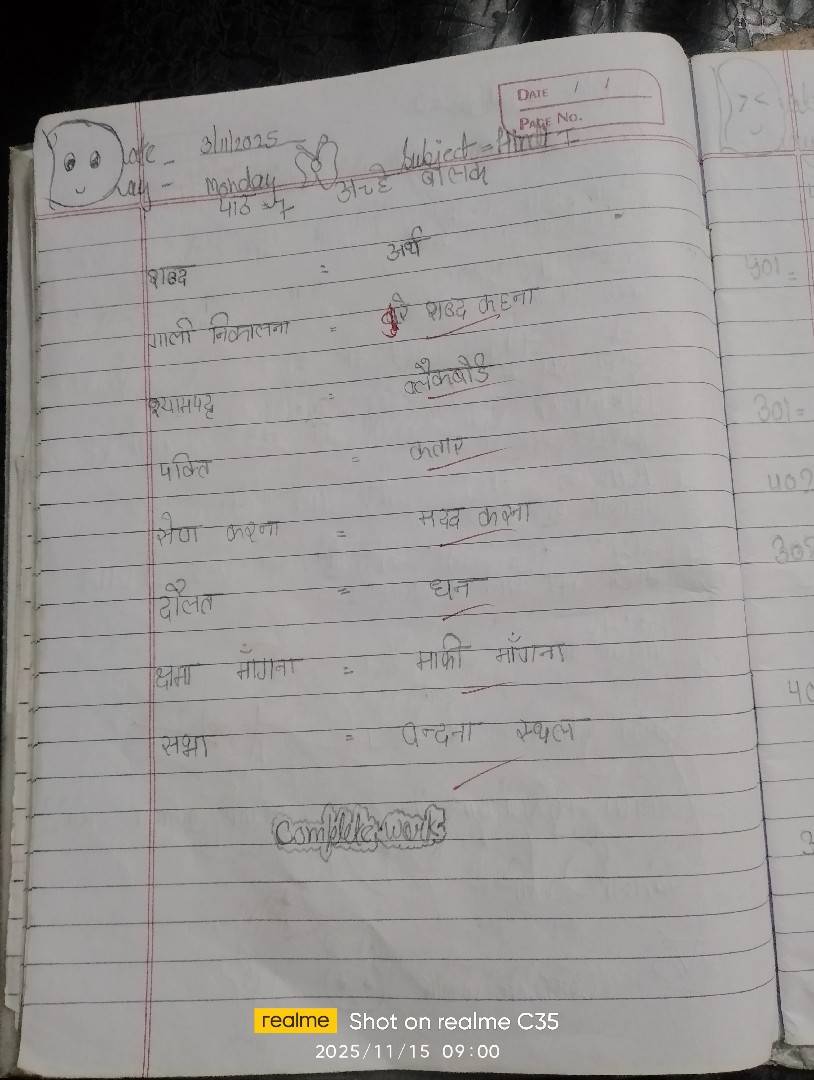 DATE / /
PAGE No.
Date - 3/11/2025 Subject = Hindi
Day - Monday
पाठ - 7 अच्छे बालक
शब्द = अर्थ
गाली निकालना = बुरे शब्द कहना
श्यामपट्ट = ब्लैकबोर्ड
पंक्ति = कतार
सेवा करना = मदद करना
दौलत = धन
क्षमा माँगना = माफी माँगना
सभा = वन्दना स्थल
Complete work
301 =
402
305
realme Shot on realme C35
2025/11/15 09:00